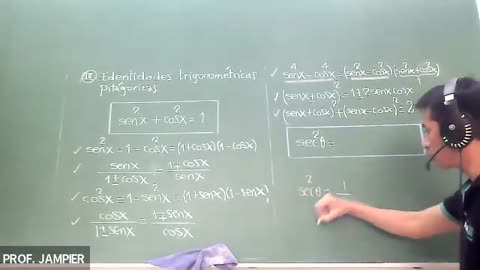 III Identidades trigonométricas
pitagóricas
sen²x + cos²x = 1
✓ sen²x = 1 - cos²x = (1+cosx)(1-cosx)
senx/(1±cosx) = (1∓cosx)/senx
✓ cos²x = 1 - sen²x = (1+senx)(1-senx)
✓ cosx/(1±senx) = (1∓senx)/cosx
✓ sen⁴x - cos⁴x = (sen²x - cos²x)(sen²x + cos²x)
✓ (senx + cosx)² = 1 + 2senxcosx
✓ (senx + cosx)² + (senx - cosx)² = 2
sec²θ =
sec²θ = 1
PROF. JAMPIER